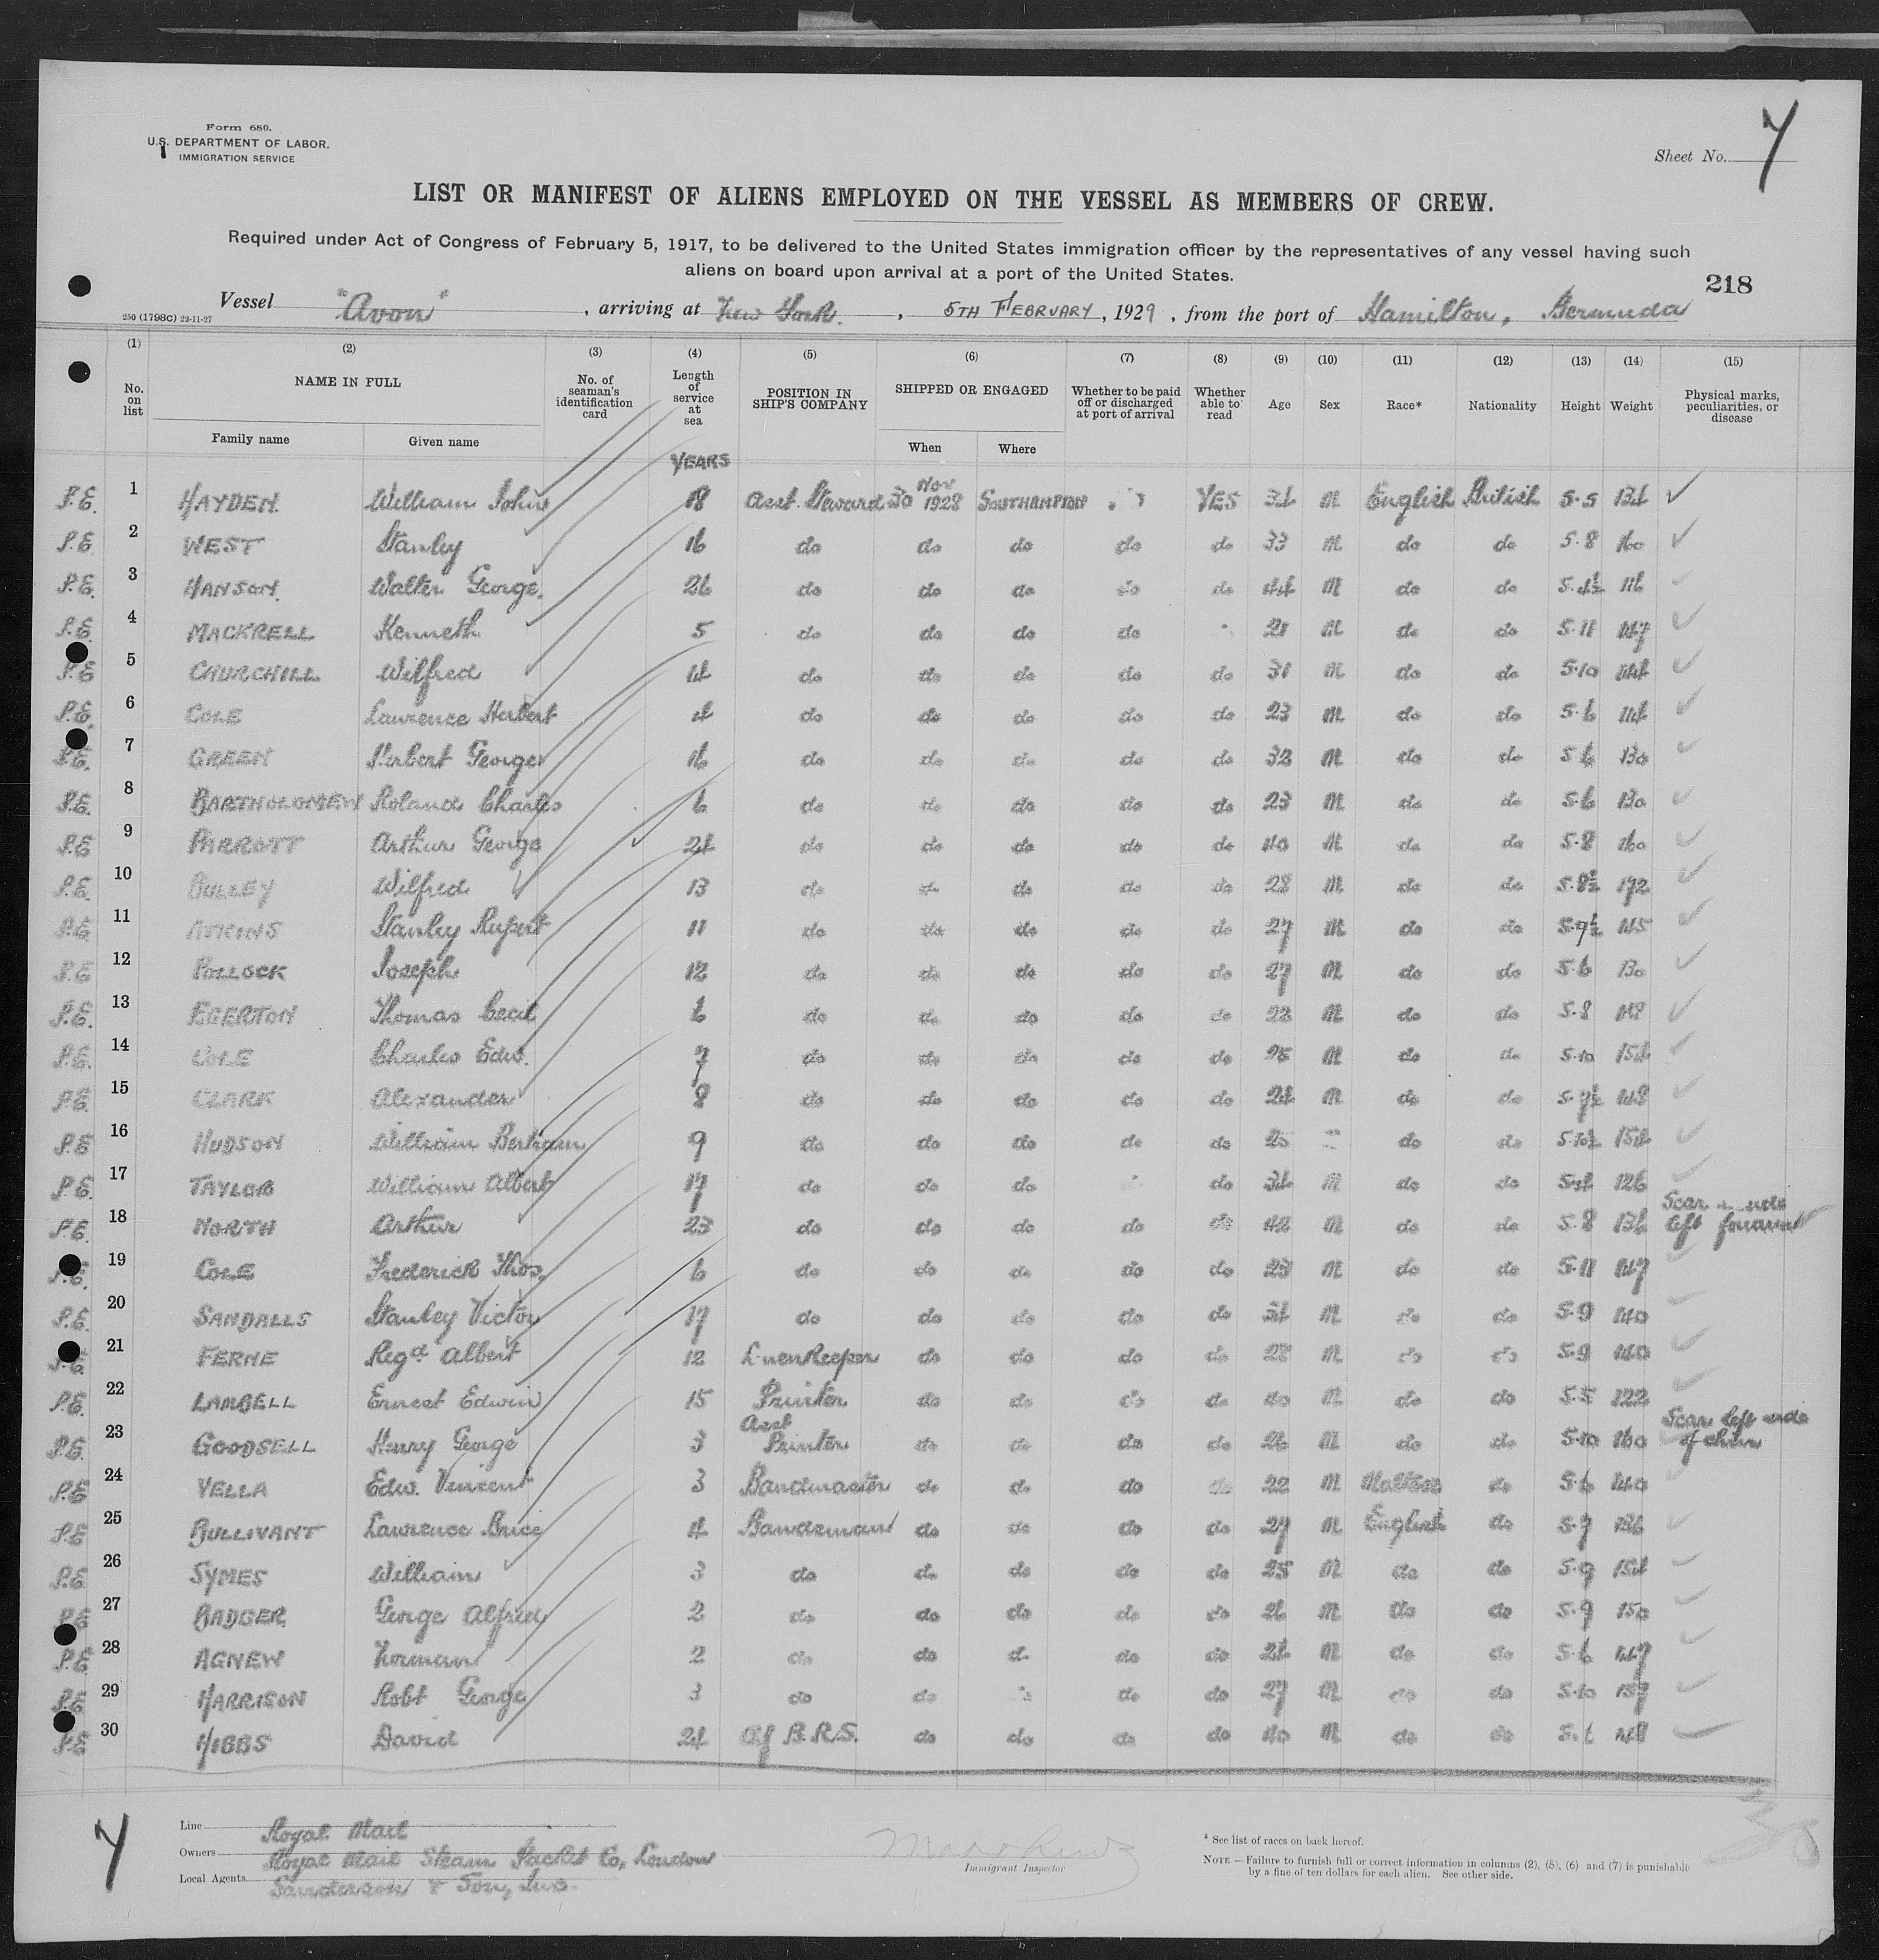 Form 680.
U.S. DEPARTMENT OF LABOR.
IMMIGRATION SERVICE
Sheet No. 7
LIST OR MANIFEST OF ALIENS EMPLOYED ON THE VESSEL AS MEMBERS OF CREW.
Required under Act of Congress of February 5, 1917, to be delivered to the United States immigration officer by the representatives of any vessel having such
aliens on board upon arrival at a port of the United States.
218
Vessel "Avon", arriving at New York, 5TH FEBRUARY, 1929, from the port of Hamilton, Bermuda
250 (1798C) 22-11-27
(1) (2) (3) (4) (5) (6) (7) (8) (9) (10) (11) (12) (13) (14) (15)
No. on list NAME IN FULL Family name Given name No. of seaman's identification card Length of service at sea POSITION IN SHIP'S COMPANY SHIPPED OR ENGAGED When Where Whether to be paid off or discharged at port of arrival Whether able to read Age Sex Race* Nationality Height Weight Physical marks, peculiarities, or disease
YEARS
P.E. 1 HAYDEN William John 18 Asst. Steward 30 Nov 1928 SOUTHAMPTON YES 34 M English British 5.5 134
P.E. 2 WEST Stanley 16 do do do do do 33 M do do 5.8 160
P.E. 3 HANSON Walter George 26 do do do do do 44 M do do 5.4½ 116
P.E. 4 MACKRELL Kenneth 5 do do do do 21 M do do 5.11 147
P.E. 5 CHURCHILL Wilfred 14 do do do do do 31 M do do 5.10 144
P.E. 6 COLE Lawrence Herbert 4 do do do do do 23 M do do 5.6 114
P.E. 7 GREEN Herbert George 16 do do do do do 32 M do do 5.6 130
P.E. 8 BARTHOLOMEW Roland Charles 6 do do do do do 23 M do do 5.6 130
P.E. 9 PARROTT Arthur George 24 do do do do do 40 M do do 5.8 160
P.E. 10 BULLEY Wilfred 13 do do do do do 28 M do do 5.8½ 172
P.E. 11 ATKINS Stanley Rupert 11 do do do do do 27 M do do 5.9½ 145
P.E. 12 POLLOCK Joseph 12 do do do do do 27 M do do 5.6 130
P.E. 13 EGERTON Thomas Cecil 6 do do do do do 22 M do do 5.8
P.E. 14 COLE Charles Edw. 7 do do do do do 25 M do do 5.10 154
P.E. 15 CLARK Alexander 8 do do do do do 24 M do do 5.7½ 148
P.E. 16 HUDSON William Bertram 9 do do do do do 25 do do 5.10½ 154
P.E. 17 TAYLOR William Albert 17 do do do do 34 M do do 5.4 126
P.E. 18 NORTH Arthur 23 do do do do do 42 M do do 5.8 136 Scar left forearm
P.E. 19 COLE Frederick Thos. 6 do do do do do 23 M do do 5.11 147
P.E. 20 SANDALLS Stanley Victor 17 do do do do do 34 M do do 5.9 140
P.E. 21 FERNE Regd Albert 12 Linenkeeper do do do do 28 M do do 5.9 140
P.E. 22 LAMBELL Ernest Edwin 15 Printer do do do do M do do 5.5 122
P.E. 23 GOODSELL Henry George 3 Asst Printer do do do do 26 M do do 5.10 160 Scar left side of chin
P.E. 24 VELLA Edw. Vincent 3 Bandmaster do do do do 22 M Maltese do 5.6 140
P.E. 25 BULLIVANT Lawrence Brice 4 Bandsman do do do do 27 M English do 5.7 136
P.E. 26 SYMES William 3 do do do do do 25 M do do 5.9 154
P.E. 27 BADGER George Alfred 2 do do do do do 26 M do do 5.9 150
P.E. 28 AGNEW Norman 2 do do do do do 24 M do do 5.6 147
P.E. 29 HARRISON Robt George 3 do do do do 27 M do do 5.10 157
P.E. 30 HIBBS David 24 do do do do 40 M do do 148
7
Line Royal Mail
Owners Royal Mail Steam Packet Co, London
Local Agents Sanderson & Son, Inc.
Immigrant Inspector
* See list of races on back hereof.
NOTE.—Failure to furnish full or correct information in columns (2), (5), (6) and (7) is punishable
by a fine of ten dollars for each alien. See other side.